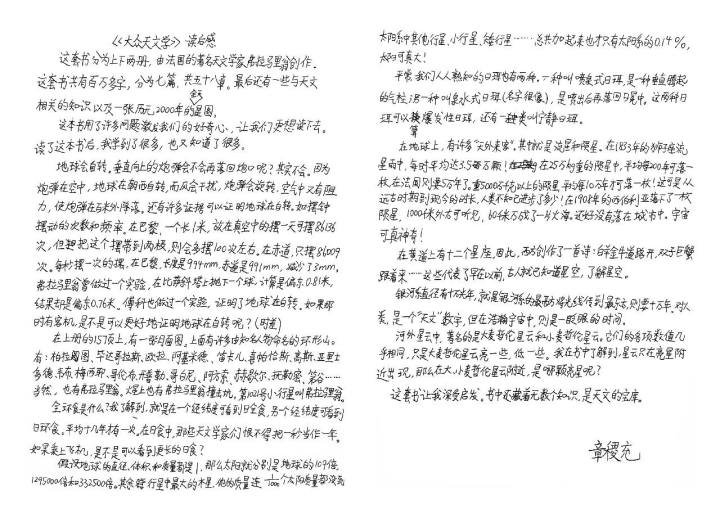 《大众天文学》读后感
这套书分为上下两册，由法国的著名天文学家弗拉马里翁创作。
这套书共有百万多字，分为七篇，共五十八章，最后还有一些与天文
相关的知识以及一张历元2000年的全天星图。
这本书用了许多问题激发我们的好奇心，让我们更想读下去。
读了这本后，我学到了很多，也又知道了很多。
地球会自转。垂直向上的炮弹会不会再落回炮口呢？其实不会。因为
炮弹在空中，地球在朝西自转，而风会干扰，炮弹会旋转，空气中又有阻
力，使炮弹在与米外降落。还有许多证据可以证明地球在自转。如摆钟
摆动的次数和频率。在巴黎，一个长1米，放在真空中的摆一天可摆86136
次，但把这个摆带到两极，则会多摆100次左右。在赤道，只摆86009
次。每秒摆一次的摆，在巴黎，长度是994mm，赤道是991mm，减少了3mm。
弗拉马里翁曾做过一个实验，在比萨斜塔上抛下一个球，计算是偏东0.81米，
结果却是偏东0.76米。傅科也做过一个实验，证明了地球在自转。如果那
时有飞机，是不是可以更好地证明地球在自转呢？（时差）
在上册的157页上，有一张月面图，上面有许多由知名人物命名的环形山。
有：柏拉图、毕达哥拉斯、欧拉、阿基米德、笛卡儿、喜帕恰斯、高斯、亚里士
多德、卡西尼、梅西耶、哥伦布、第谷、哥白尼、阿方索、赫歇尔、托勒密、第谷……
当然，也有弗拉马里翁。火星上也有弗拉马里翁撞击坑。第1021号小行星叫弗拉马里翁。
全环食是什么？据了解到，就是在一个经纬度可看到日全食，另一个经纬度可看到
日环食。平均十几年有一次。在日食中，那些天文学家们恨不得把一秒当作一年。
如果乘上飞机，是不是可以看到更长的日食？
假设地球的直径、体积和质量都是1，那么太阳就分别是地球的109倍、
1295000倍和332500倍。其余行星中最大的木星，他的质量连1/1000个太阳质量都没有
太阳系中其他行星、小行星、矮行星……总共加起来也才只有太阳系的0.14%，
太阳可真大！
平常我们人人熟知的日珥也有两种。一种叫喷发式日珥，是一种垂直腾起
的气柱；另一种叫泉水式日珥（名字很像），是喷出后再落回日冕中。这两种日
珥可以算爆发性日珥，还有一类叫宁静日珥。
在地球上，有许多"天外来客"。其中就是流星和陨星。在1833年的狮子座流
星雨中，每时平均达3.5万颗！在25万吨重的陨星中，平均每200年可落一
枚，在法国则要5万年了。重5000万吨以上的陨星平均每10万年才可落一枚！这可是从
远古时期到现今的时长，人类不知已进步了多少！在1908年的西伯利亚落下了一枚
陨星，1000千米外亦可听见，60千米方成了一片火海。还好没有落在城市中。宇宙
可真神奇！
在黄道上有十二个星座，因此，西方创作了一首诗：白羊金牛道路开，双子巨蟹
跟着来……这些代表了早在以前，古人就已知道星空，了解星空。
银河系直径有十万光年，就是银河系的最西方将光线传到最东方，则要十万年。对人
类，是一个"天文"数字，但在浩瀚宇宙中，则是一眨眼的时间。
河外星云中，著名的是大麦哲伦星云和小麦哲伦星云。它们的各项数值几
乎相同，只是大麦哲伦星云亮一些，低一些。我在书中了解到，星云只在亮星附
近出现，那么在大、小麦哲伦星云附近，是哪颗亮星呢？
这套书让我深受启发。书中还蕴着无数个知识，是天文的宝库。
章稷允